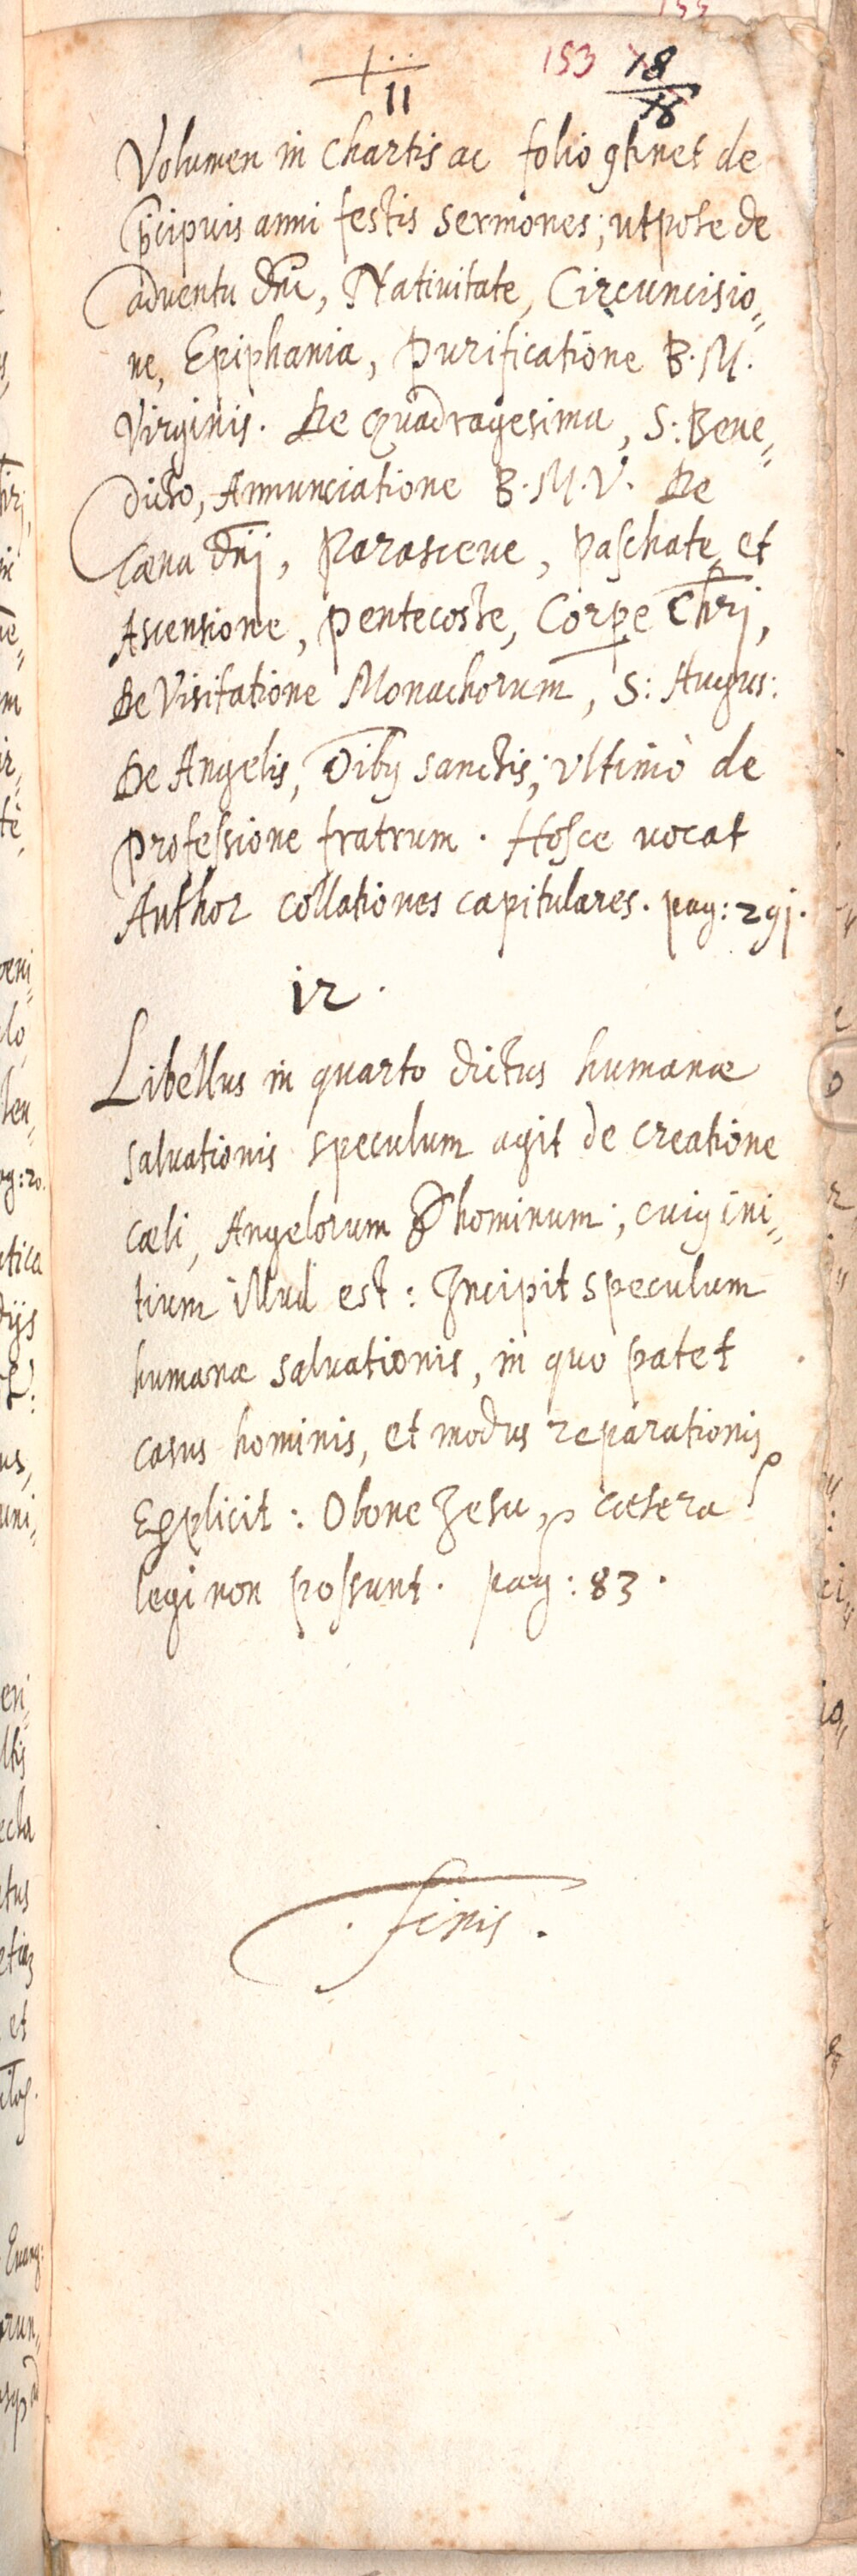 153 18
11 18
Volumen in chartis ac folio ꝯtinet de
p̄cipuis anni festis sermones; utpote de
adventu dn̄i, Nativitate, Circuncisio„
ne, Epiphania, Purificatione B. M.
Virginis. De Quadragesima, S: Bene„
dicto, Annunciatione B. M. V. De
Cæna dn̄j, Parasceue, Paschate, et
Ascensione, Pentecoste, Corpe Chr̄j,
De Visitatione Monachorum, S: Augus:
De Angelis, Oīb9 sanctis; ultimò de
professione fratrum. Hosce vocat
Author collationes capitulares. pag: 291.
12.
Libellus in quarto dictus humanæ
salvationis speculum agit de creatione
cæli, Angelorum & hominum; cui9 ini„
tium illud est: Incipit speculum
humanæ salvationis, in quo patet
casus hominis, et modus reparationis
Explicit: O bone Jesu, cætera
legi non possunt. pag: 83.
Finis.